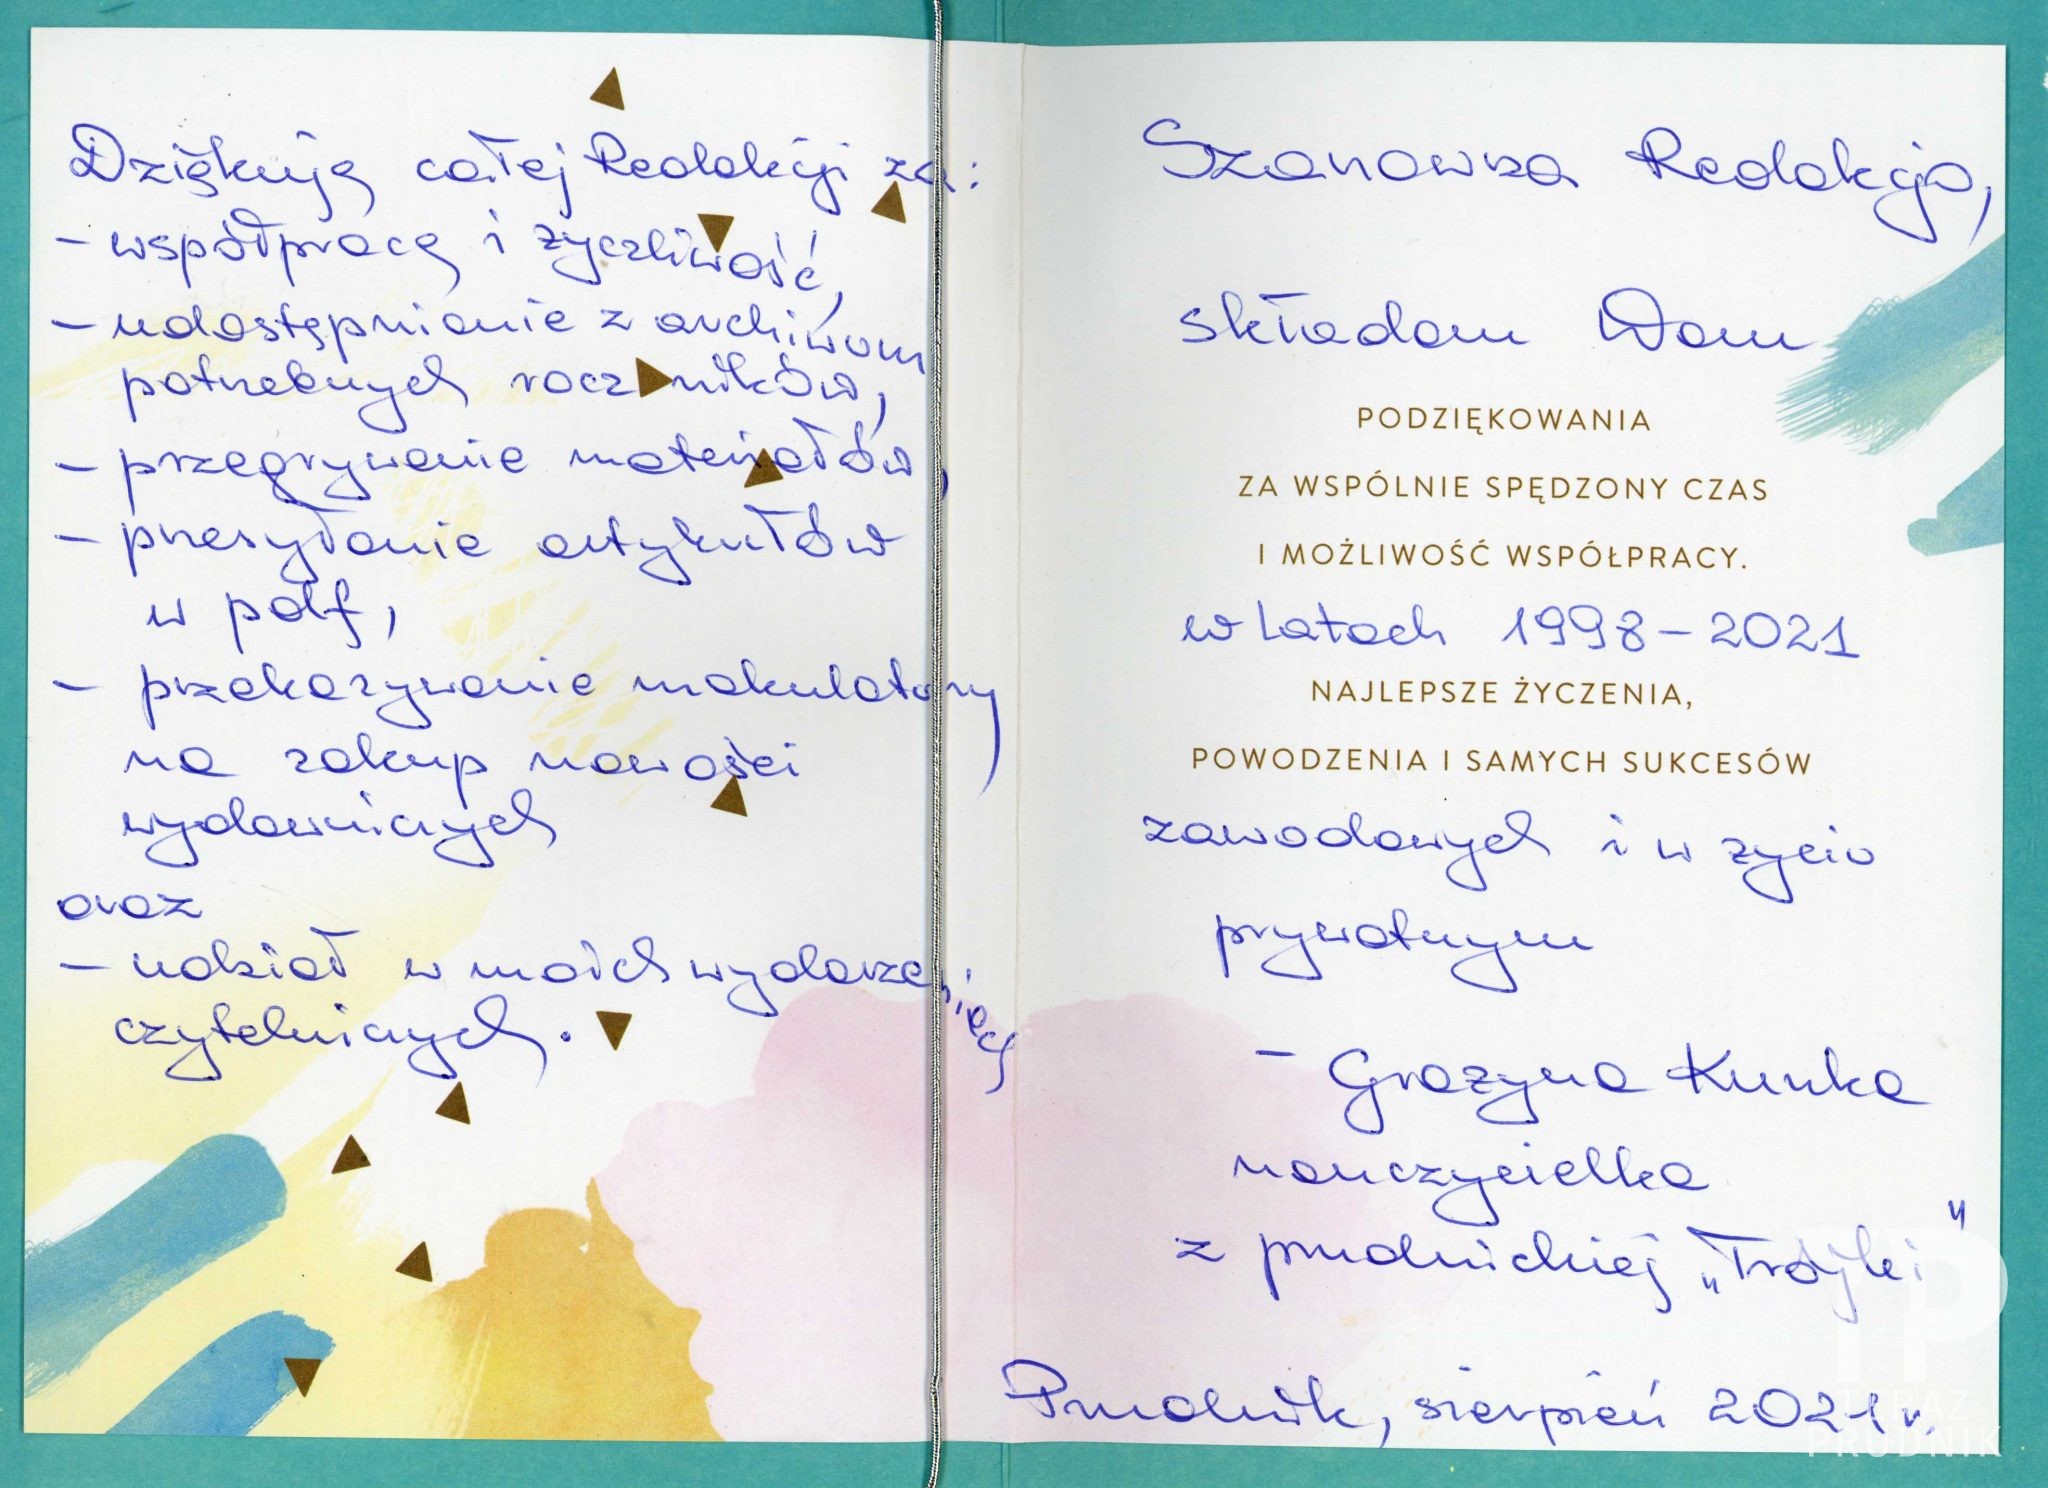 Dziękuję całej Redakcji za:
- współpracę i życzliwość,
- udostępnianie z archiwum
potrzebnych roczników,
- przegrywanie materiałów,
- przesyłanie artykułów
w pdf,
- przekazywanie makulatury
na zakup nowości
wydawniczych
oraz
- udział w moich wydarzeniach
czytelniczych.
Szanowna Redakcjo,
składam Wam
PODZIĘKOWANIA
ZA WSPÓLNIE SPĘDZONY CZAS
I MOŻLIWOŚĆ WSPÓŁPRACY.
w latach 1998-2021
NAJLEPSZE ŻYCZENIA,
POWODZENIA I SAMYCH SUKCESÓW
zawodowych i w życiu
prywatnym
- Grażyna Kunka
nauczycielka
z prudnickiej „Trójki"
Prudnik, sierpień 2021 r.
TERAZ
PRUDNIK